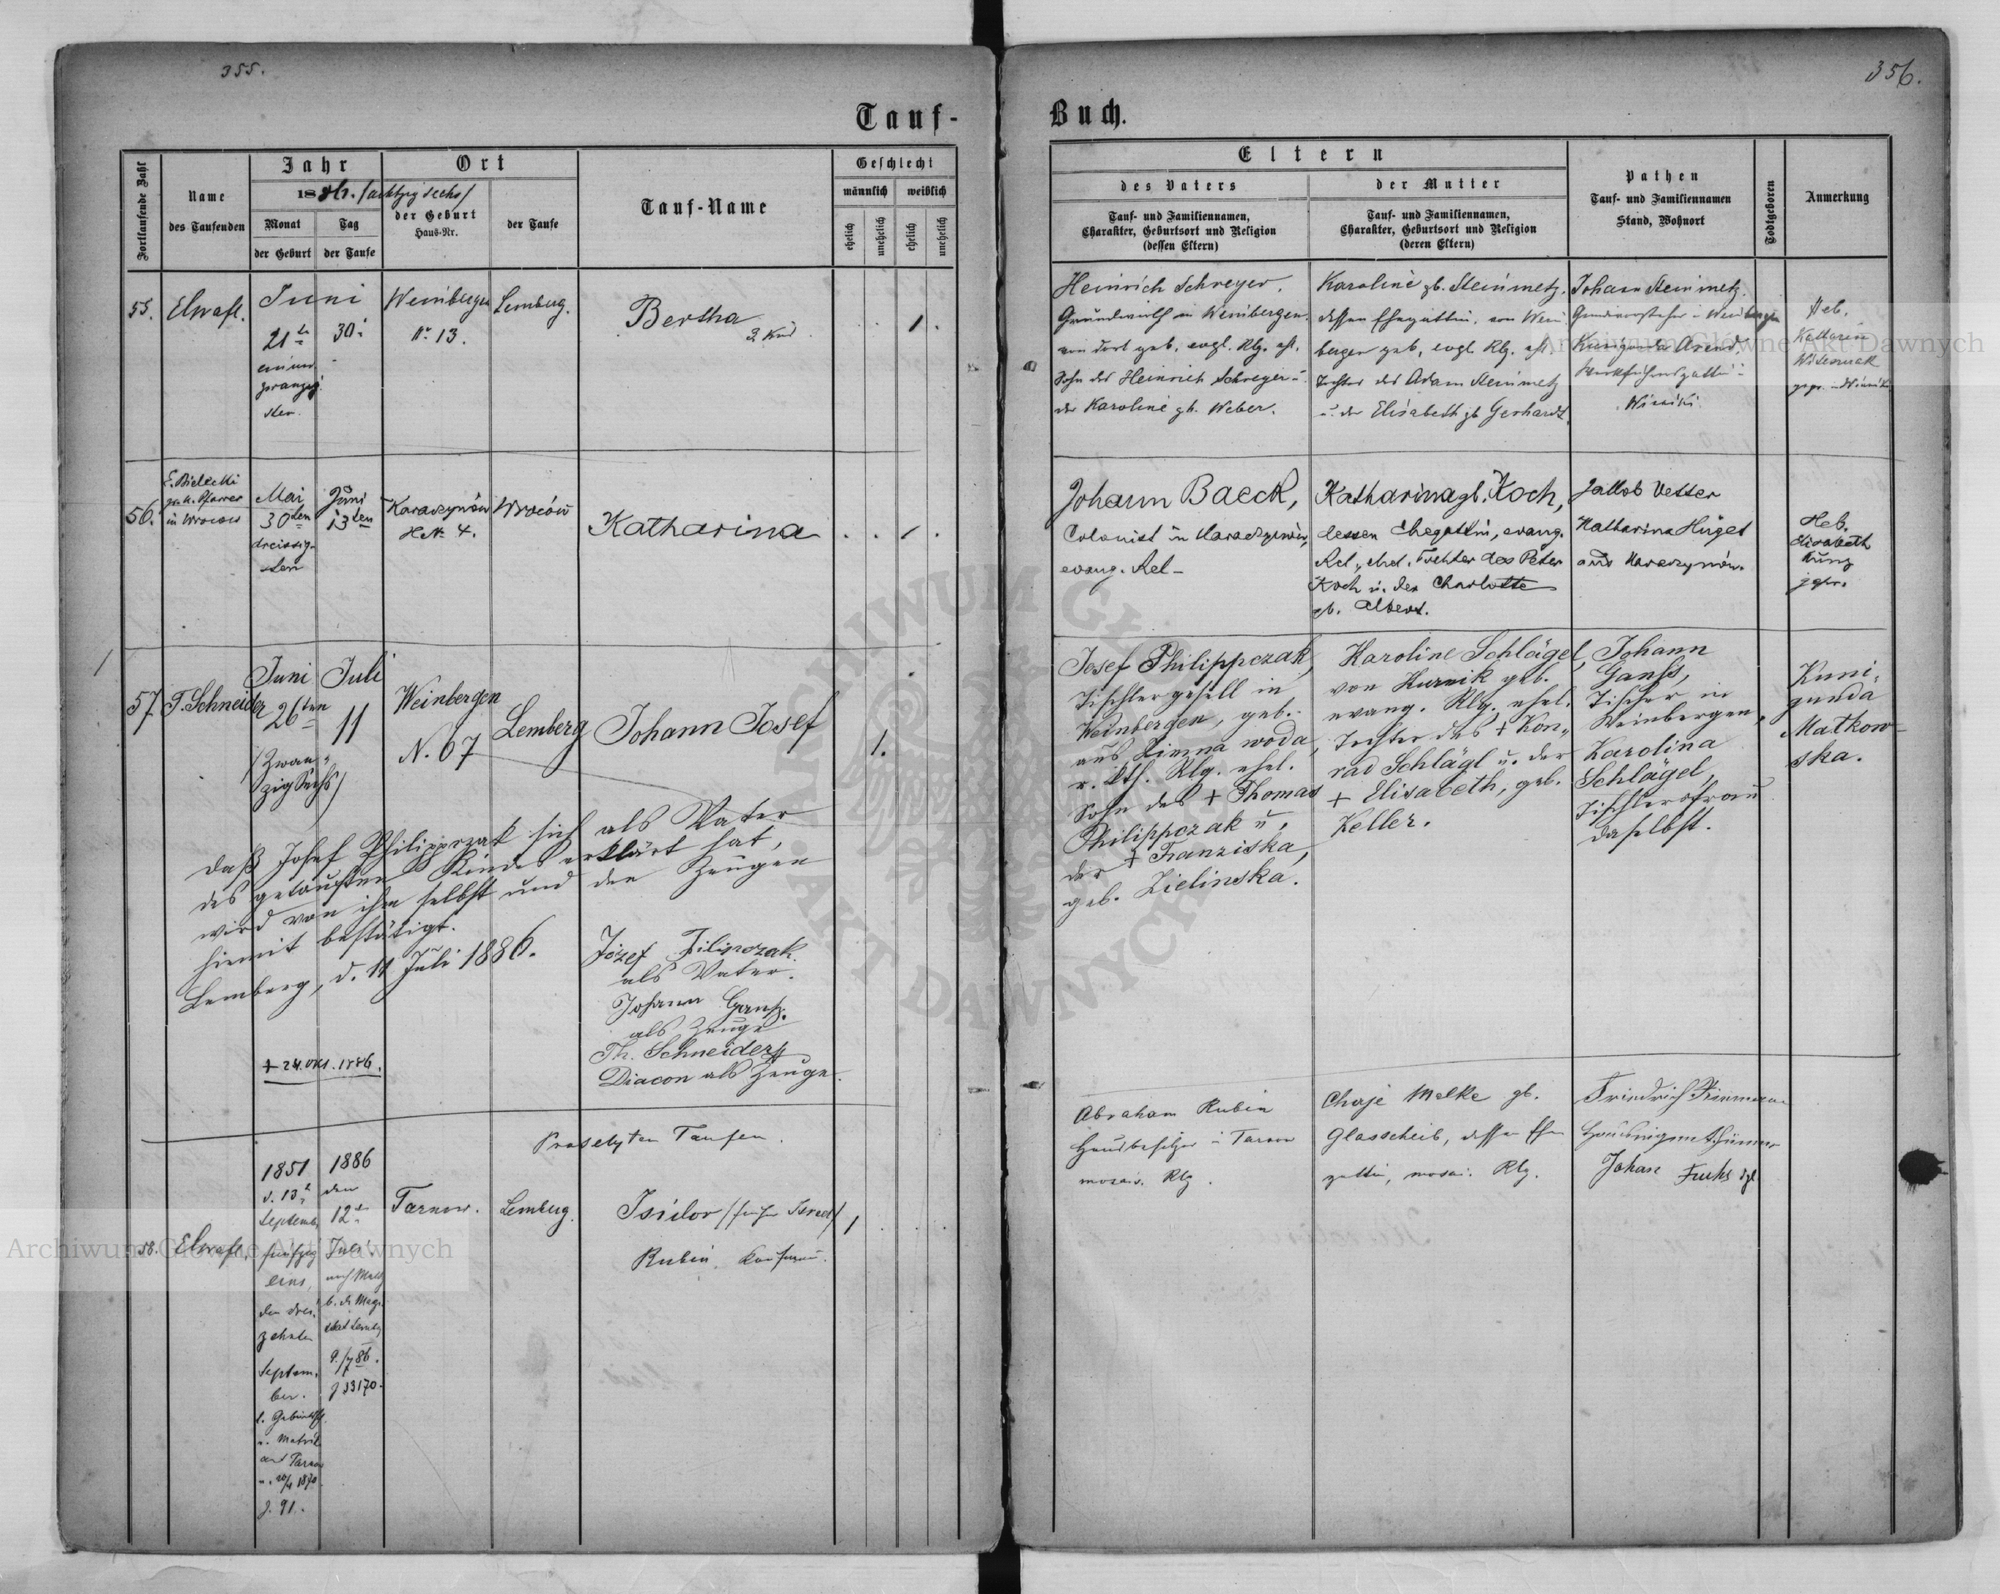 355.
356.
Tauf-
Buch.
Fortlaufende Zahl
Name
des Taufenden
Jahr
1886. /achtzig sechs/
Monat
der Geburt
Tag
der Taufe
Ort
der Geburt
Haus-Nr.
der Taufe
Tauf-Name
Geschlecht
männlich
weiblich
ehelich
unehelich
ehelich
unehelich
Eltern
des Vaters
Tauf- und Familiennamen,
Charakter, Geburtsort und Religion
(dessen Eltern)
der Mutter
Tauf- und Familiennamen,
Charakter, Geburtsort und Religion
(deren Eltern)
Pathen
Tauf- und Familiennamen
Stand, Wohnort
Todtgeboren
Anmerkung
55.
Juni
21
30
Weinbergen
Nr 13.
Lemberg.
Bertha
3. Kind
1
Heinrich Schreyer.
Grundwirth in Weinbergen
von dort geb, evgl. Rlg. ehl.
Sohn des Heinrich Schreyer u.
der Karoline gb. Weber.
Karoline gb. Steinmetz.
dessen Ehegattin, von Wein
bergen geb, evgl. Rlg. ehl.
Tochter des Adam Steinmetz
u. der Elisabeth gb Gerhardt.
Johann Steinmetz.
Kunigunda
Winniki
Heb.
Katharin
56.
in Wrocow
Mai
30ten
dreissig-
sten
Juni
13ten
Karaczynów
HNr 4.
Wrocow
Katharina
1
Johann Baeck,
Colonist in Karaczynów,
evang. Rel-
Katharina gb. Koch,
dessen Ehegattin, evang.
Rel., ehel. Tochter des Peter
Koch u. der Charlotte
gb. Albert.
Jakob Vetter
Katharina Hügel
aus Karaczynów.
Heb.
Elisabeth
Kung
gepr.
57.
T. Schneider
Juni
26ten
(Zwan-
zigsechs)
Juli
11
Weinbergen
N. 67
Lemberg
Johann Josef
1.
Josef Philippczak,
Tischlergesell in
Weinbergen, geb.
aus Zimna woda,
r. kth. Rlg. ehel.
Sohn des + Thomas
Philippczak u.
der + Franziska,
geb. Zielinska.
Karoline Schlägel,
von Kurnik geb.
evang. Rlg. ehel.
Tochter des + Kon-
rad Schlägl u. der
+ Elisabeth, geb.
Keller.
Johann
Ganß,
Tischler in
Weinbergen,
Karolina
Schlägel,
Tischlersfrau
daselbst.
Kuni-
gunda
Matkow-
ska.
Daß Josef Philippczak sich als Vater
des getauften Kindes erklärt hat,
wird von ihm selbst und den Zeugen
hiemit bestätigt.
Lemberg, d. 11 Juli 1886.
Józef Filipczak.
als Vater.
Johann Ganß.
als Zeuge
Th. Schneider
Diacon als Zeuge.
+ 24. Okt. 1886.
Proselyten Taufen.
58.
1851
d. 13
Septemb.
fünfzig
eins,
den drei-
zehnten
Septem-
ber.
1886
den
12
Juli
9./7 86.
Z 33170.
Tarnow.
Lemberg.
Isidor /früher Israel/
Rubin
1
Abraham Rubin
Hausbesitzer in Tarnow
mosais. Rlg.
Chaje Malke gb.
Glasscheib, dessen Ehe
gattin, mosai. Rlg.
Friedrich
Hauseigenthümer
Johann Fuchs
Z. 91.
Archiwum Główne Akt Dawnych
Archiwum Główne Akt Dawnych
ARCHIWUM GŁÓWNE AKT DAWNYCH